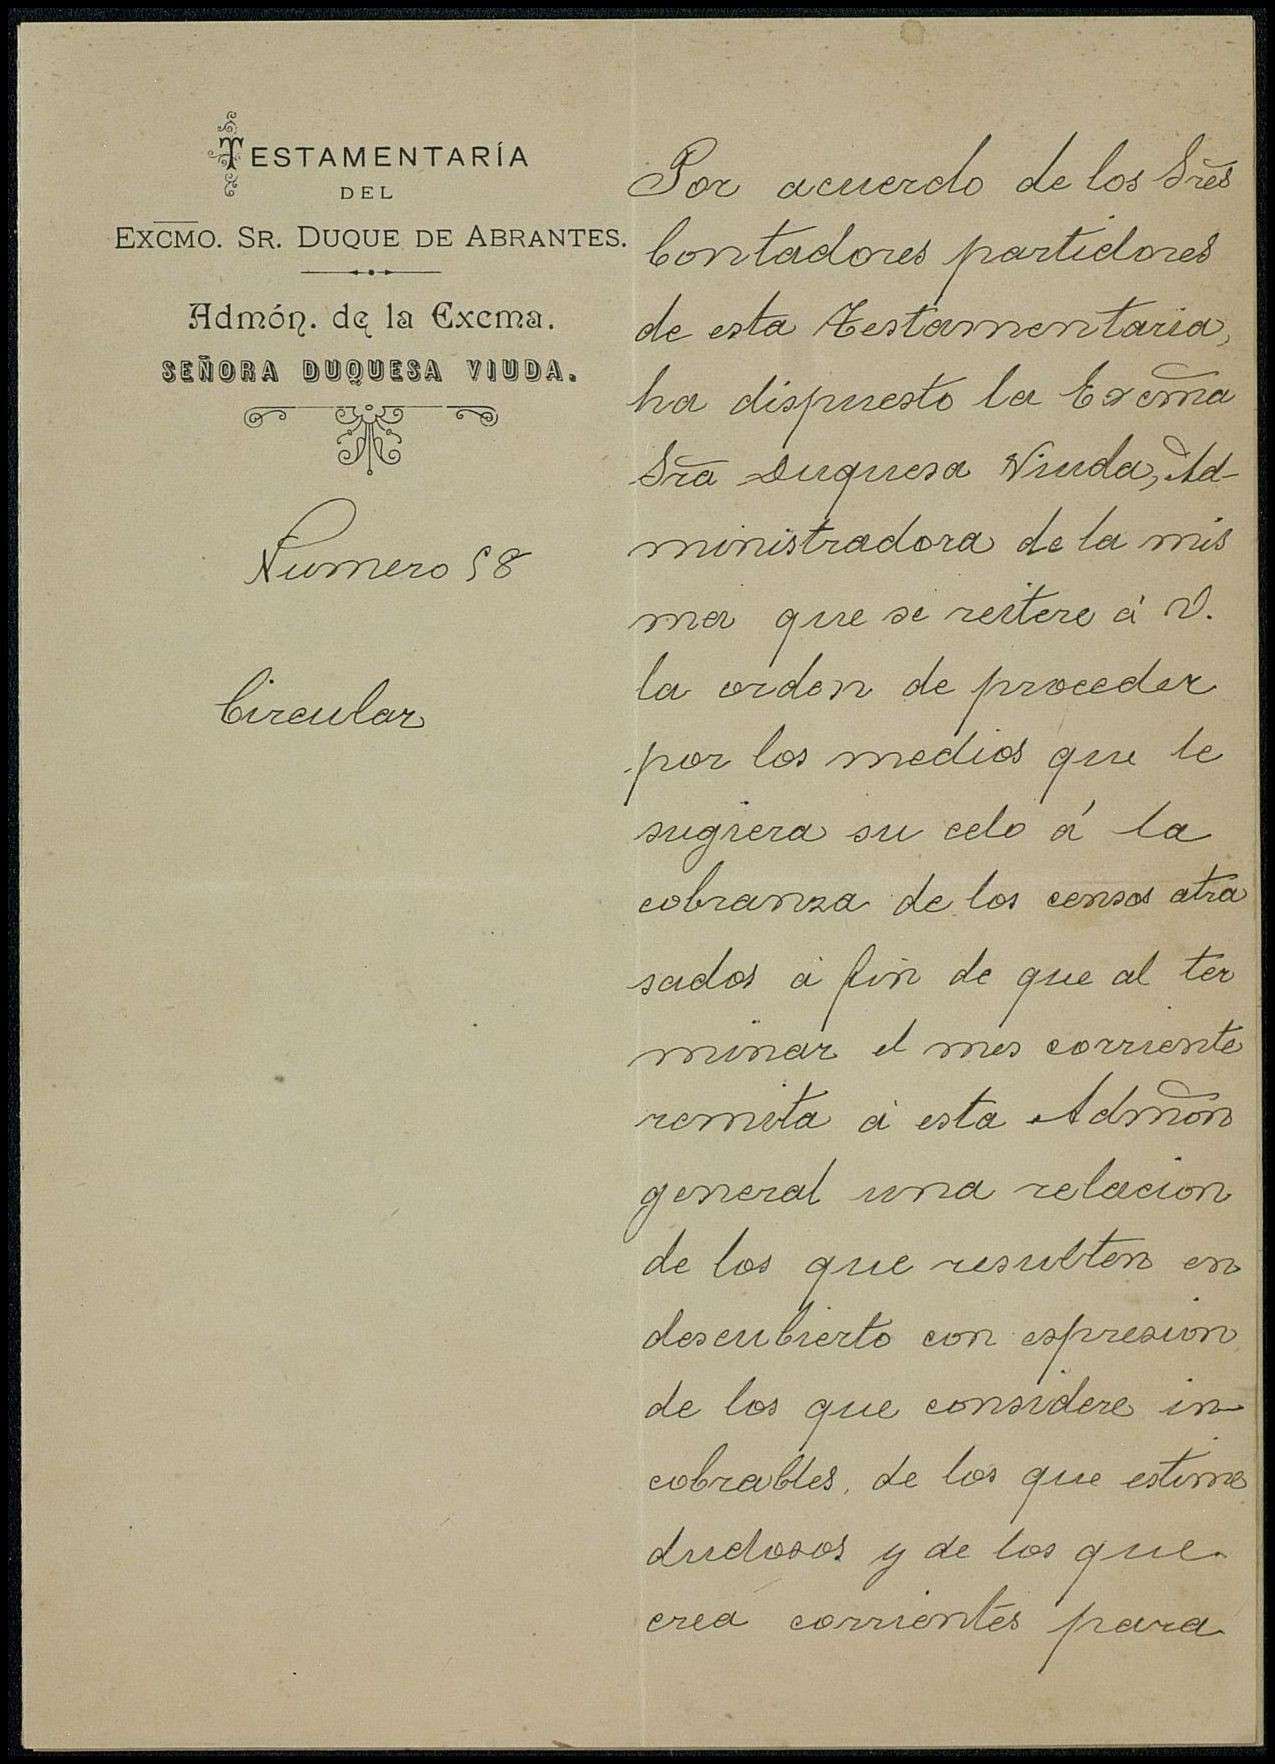 TESTAMENTARÍA
DEL
EXCMO. SR. DUQUE DE ABRANTES.
Admón. de la Excma.
SEÑORA DUQUESA VIUDA.
Numero 58
Circular
Por acuerdo de los Sres
Contadores partidores
de esta Testamentaria,
ha dispuesto la Excma
Sra Duquesa Viuda, Ad-
ministradora de la mis
ma que se reitere á V.
la orden de proceder
por los medios que le
sugiera su celo á la
cobranza de los censos atra
sados á fin de que al ter
minar el mes corriente
remita á esta Admon
general una relacion
de los que resulten en
descubierto con espresion
de los que considere in
cobrables, de los que estime
dudosos y de los que
crea corrientes para